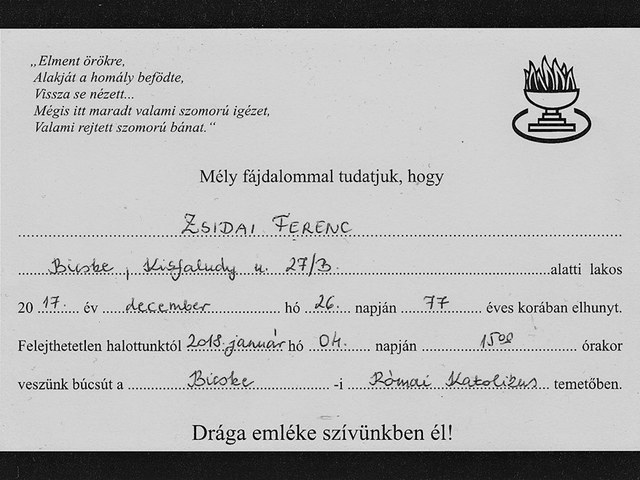 „Elment örökre,
Alakját a homály befödte,
Vissza se nézett...
Mégis itt maradt valami szomorú igézet,
Valami rejtett szomorú bánat.“
Mély fájdalommal tudatjuk, hogy
ZSIDAI FERENC
Bicske, Kisfaludy u. 27/B. alatti lakos
2017. év december hó 26. napján 77 éves korában elhunyt.
Felejthetetlen halottunktól 2018. január hó 04. napján 15⁰⁰ órakor
veszünk búcsút a Bicske -i Római Katolikus temetőben.
Drága emléke szívünkben él!